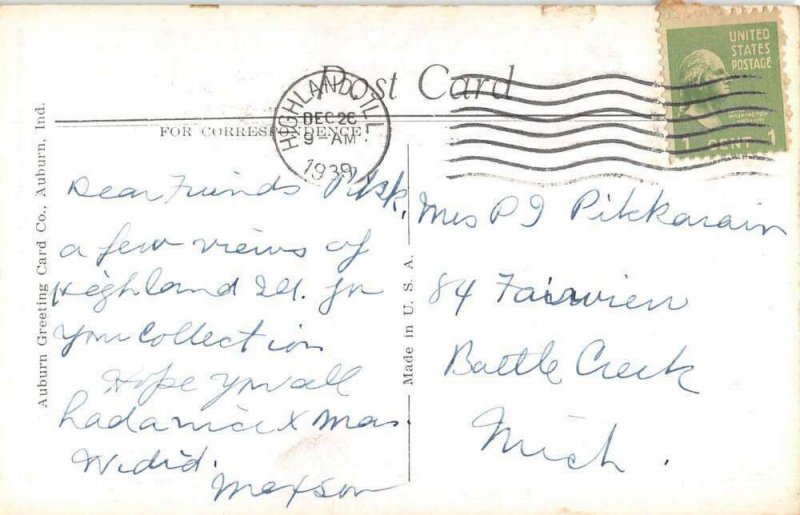 Post Card
UNITED
STATES
POSTAGE
WASHINGTON
1 CENT 1
HIGHLAND, ILL.
DEC 26
9-AM
1939
FOR CORRESPONDENCE
Auburn Greeting Card Co., Auburn, Ind.
Made in U. S. A.
Dear Friends
a few views of
Highland Ill. for
your Collection
Hope you all
had a nice X mas.
We did.
Maxson
Mrs P J Pikkarain
84 Fairview
Battle Creek
Mich.